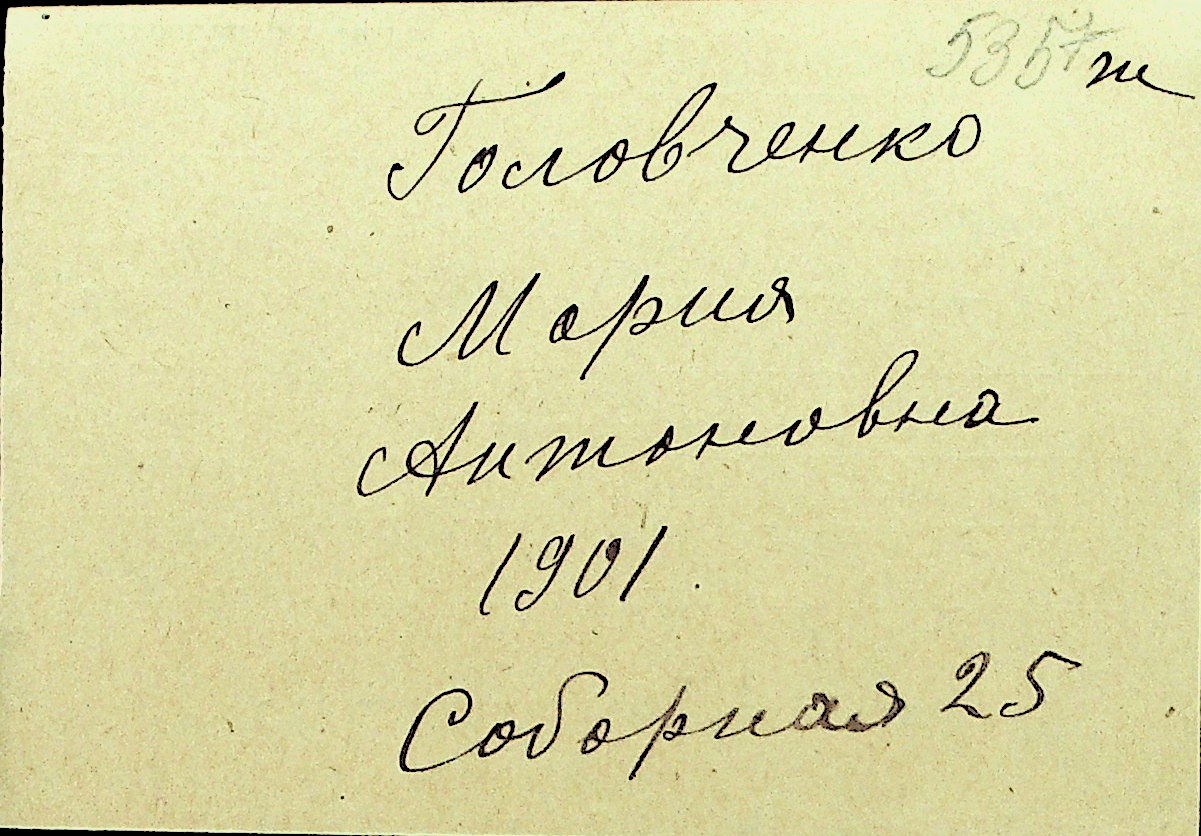 5357 ж
Головченко
Мария
Антоновна
1901
Соборная 25